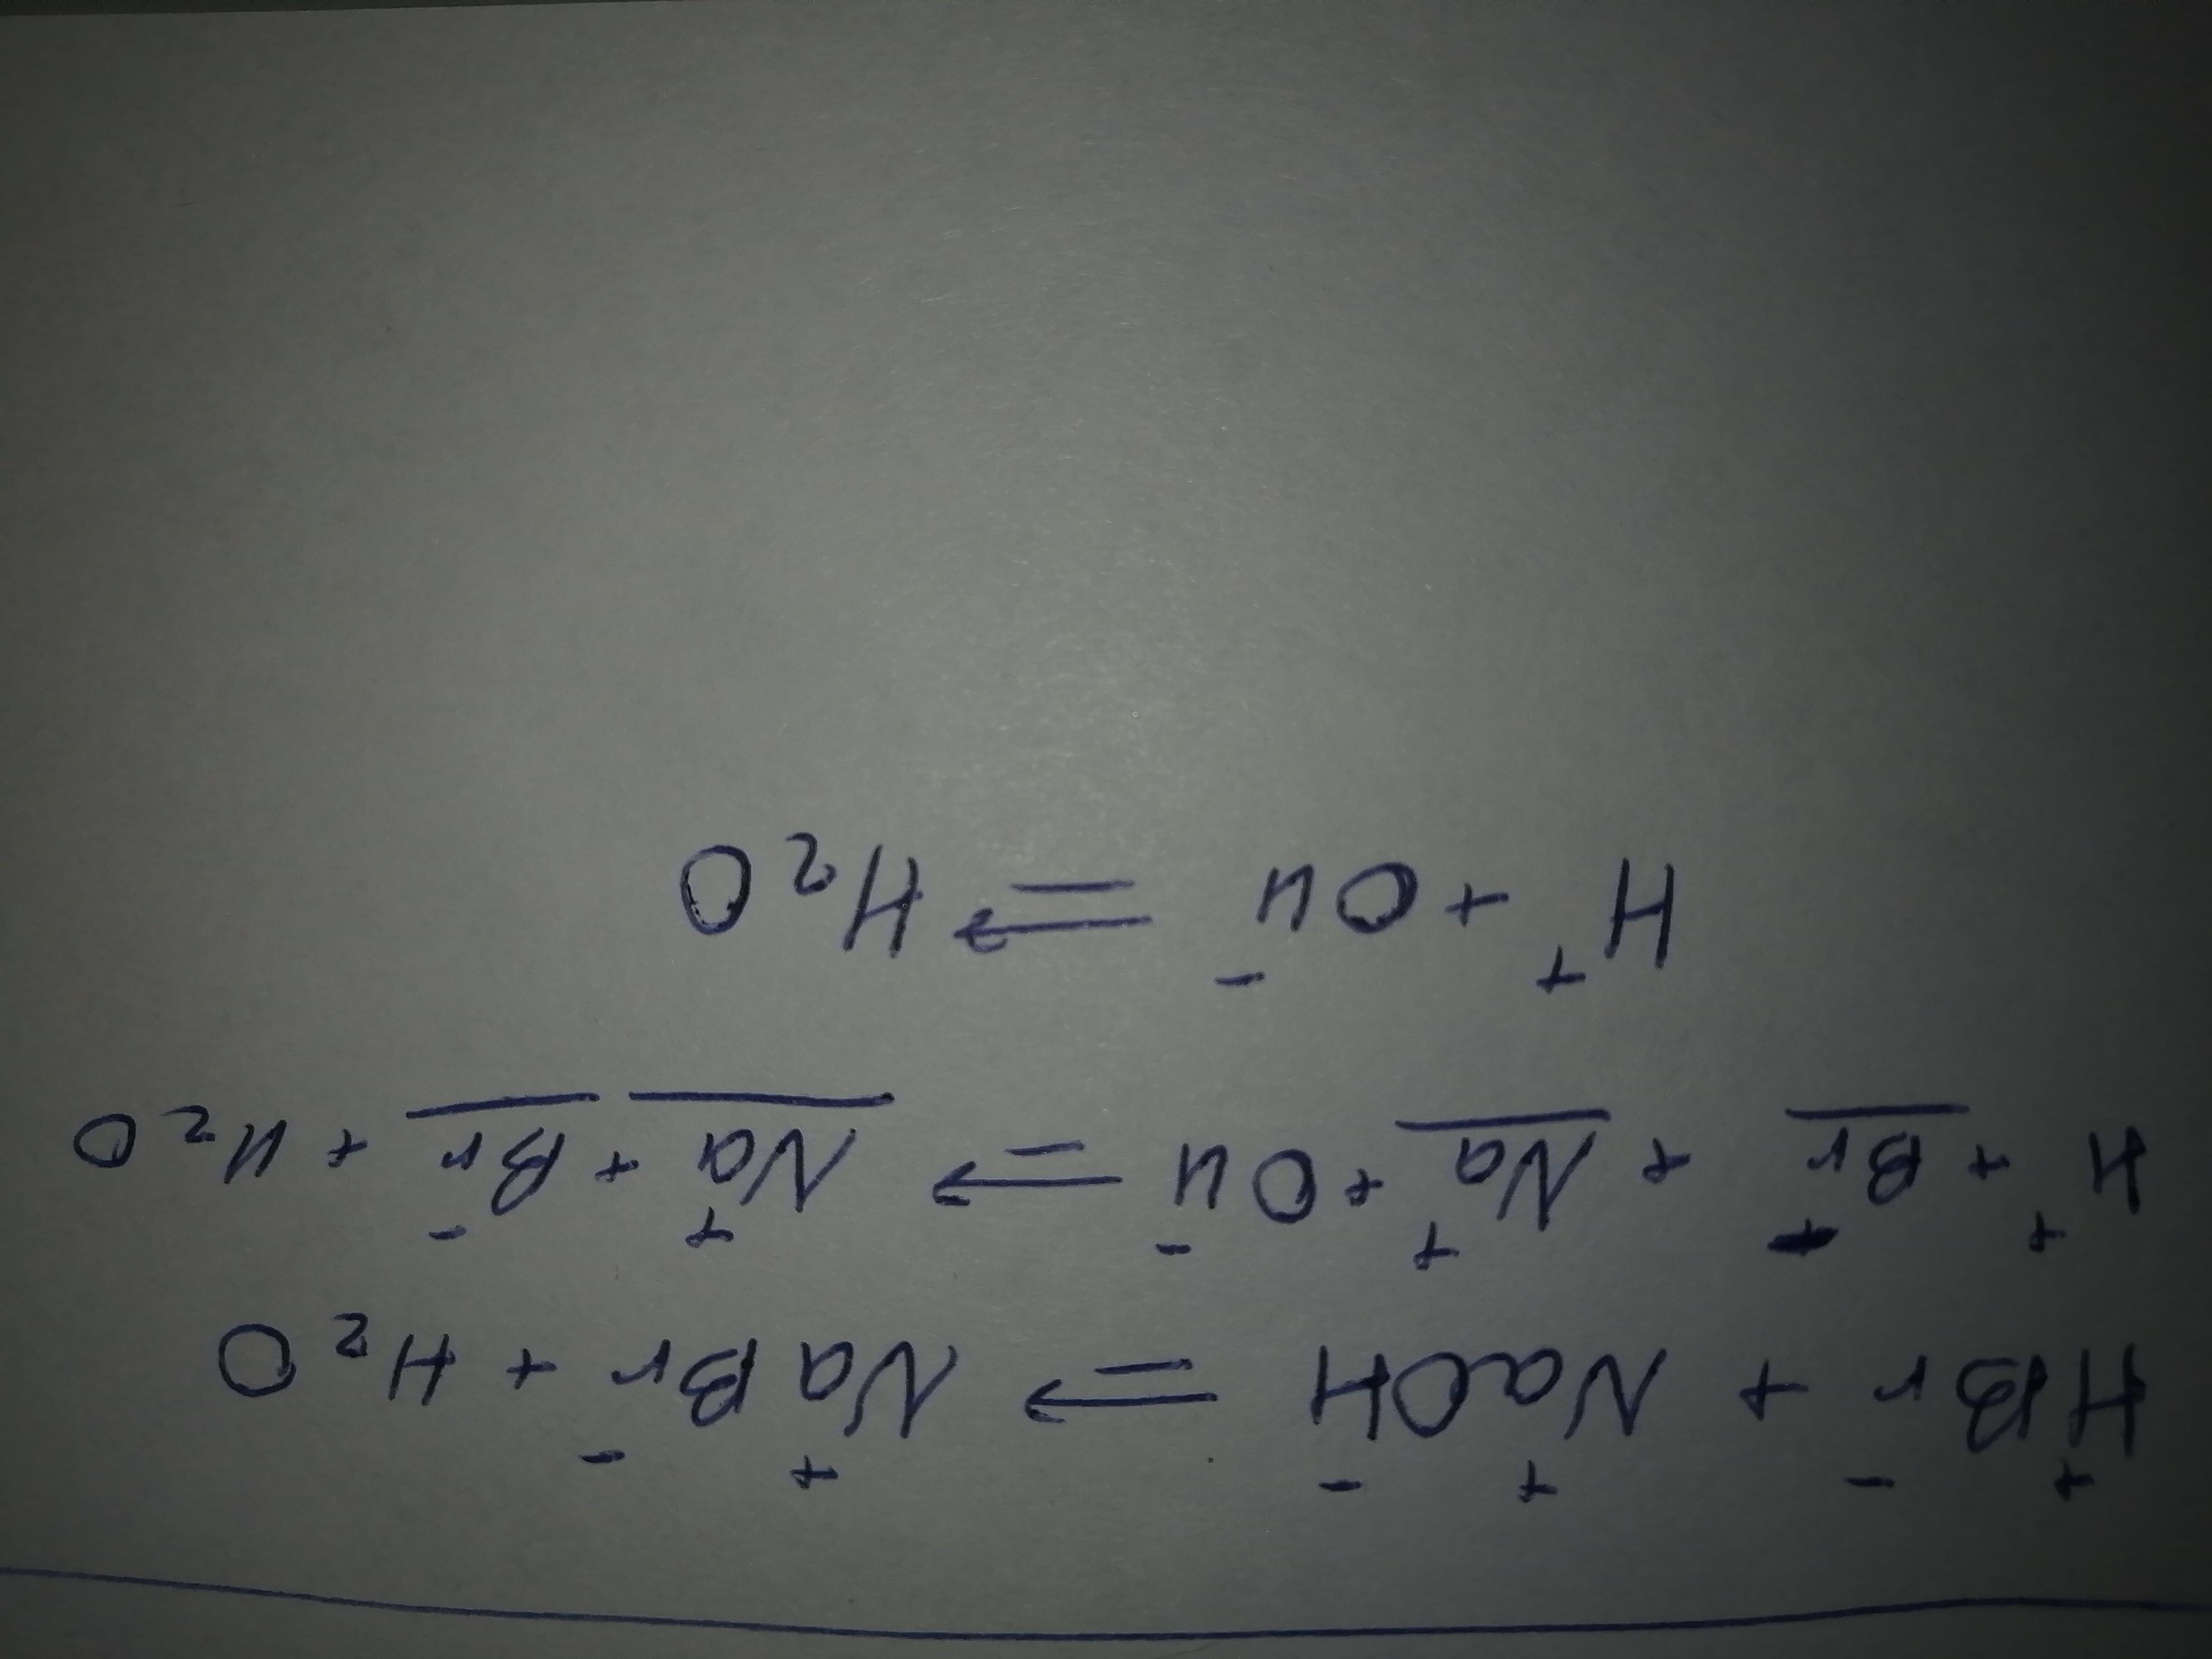 H⁺Br⁻ + Na⁺OH⁻ ⇄ Na⁺Br⁻ + H₂O
H⁺ + Br⁻ + Na⁺ + OH⁻ ⇄ Na⁺ + Br⁻ + H₂O
H⁺ + OH⁻ ⇄ H₂O